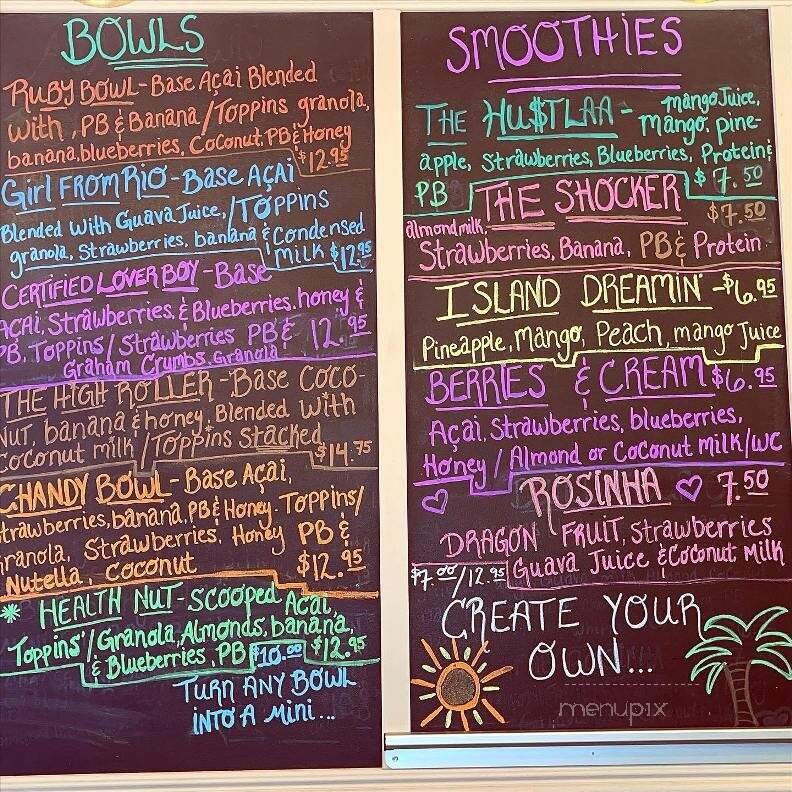 BOWLS
RUBY BOWL - Base Açai Blended
with, PB & Banana / Toppins granola,
banana, blueberries, Coconut, PB & Honey
$12.95
Girl From Rio - Base Açai
Blended with Guava Juice, / Toppins
granola, Strawberries, banana & Condensed
Milk $12.95
CERTIFIED LOVER BOY - Base
Açai, Strawberries, & Blueberries, honey &
PB. Toppins / Strawberries PB & 12.95
Graham Crumbs, Granola
THE HIGH ROLLER - Base Coco-
nut, banana & honey, Blended with
Coconut milk / Toppins stacked
$14.75
CHANDY BOWL - Base Açai,
trawberries, banana, PB & Honey. Toppins /
ranola, Strawberries, Honey PB &
Nutella, Coconut $12.95
* HEALTH NUT - SCOOPED Açai,
Toppins' / Granola, Almonds, banana,
& Blueberries, PB $10.00 $12.95
TURN ANY BOWL
INTO A Mini...
SMOOTHiES
THE HU$TLAA - mango Juice,
mango, pine-
apple, Strawberries, Blueberries, Protein &
PB $7.50
THE SHOCKER $7.50
almond milk,
Strawberries, Banana, PB & Protein
ISLAND DREAMIN' - $6.95
Pineapple, Mango, Peach, mango Juice
BERRIES & CREAM $6.95
Açai, Strawberries, blueberries,
Honey / Almond or Coconut Milk/wc
ROSINHA 7.50
DRAGON FRUIT, strawberries
Guava Juice & Coconut Milk
$7.00/12.95
CREATE YOUR
OWN...
menupix